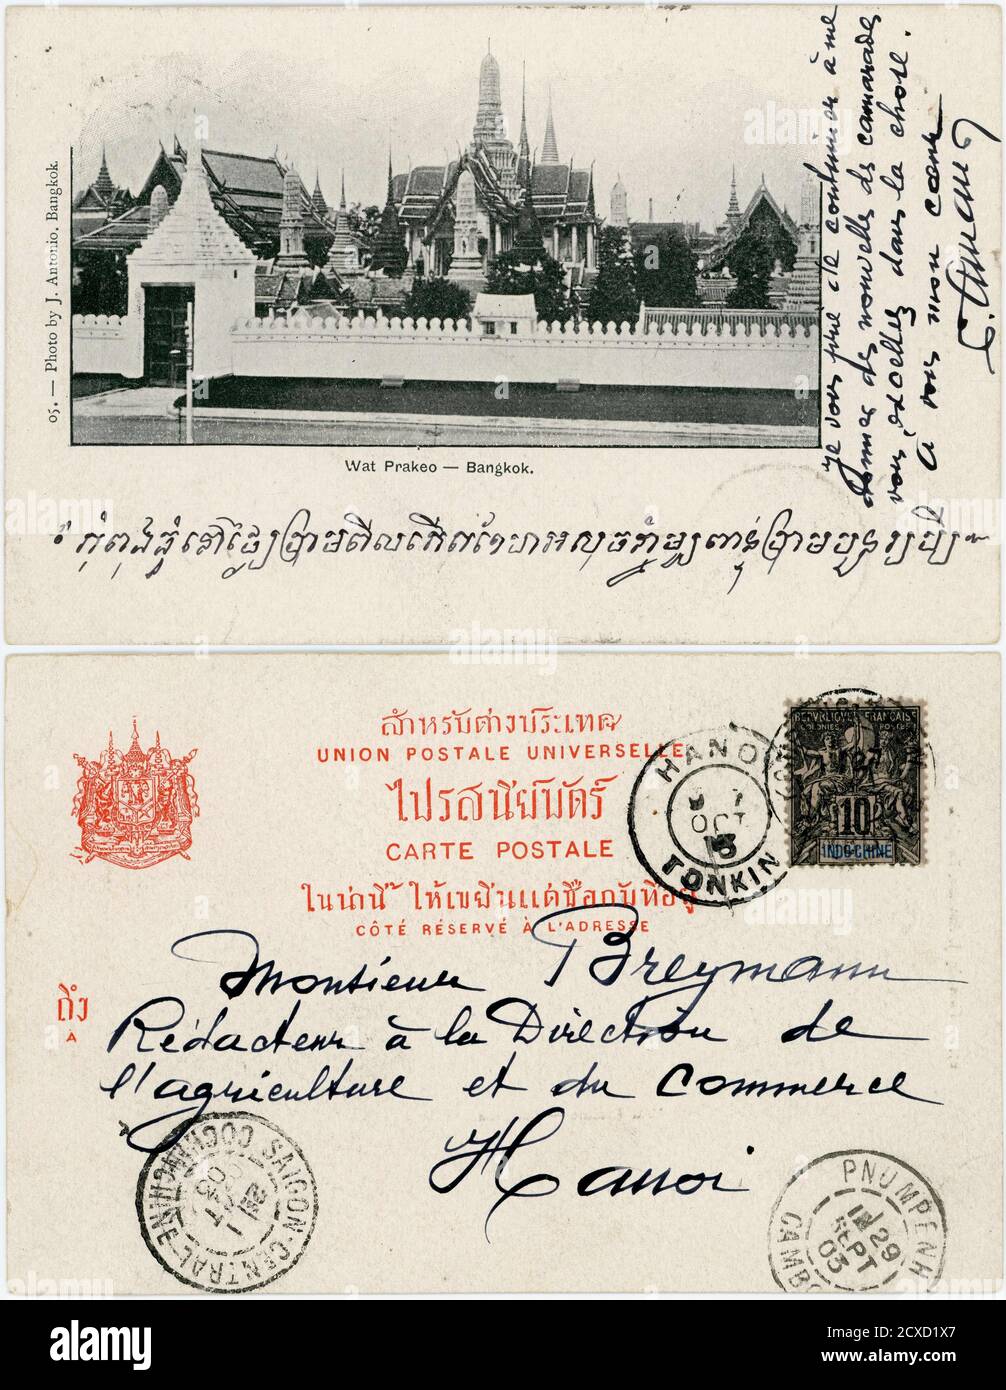 je vous prie de continuer à me
donner des nouvelles des camarades
vous excellez dans la chose.
à vous mon cœur
05. — Photo by J. Antonio, Bangkok.
Wat Prakeo — Bangkok.
สำหรับต่างประเทศ
UNION POSTALE UNIVERSELLE
ไปรสนียบัตร์
CARTE POSTALE
ในน่านี้ ให้เขียนแต่ชื่อกับที่อยู่
CÔTÉ RÉSERVÉ À L'ADRESSE
ถึง
A
HANOI
7
OCT
TONKIN
REPUBLIQUE FRANÇAISE
10
INDO-CHINE
Monsieur Breymann
Rédacteur à la Direction de
l'agriculture et du Commerce
Hanoi
SAIGON-CENTRAL
COCHINCHINE
PNUMPENH
29
SEPT
03
CAMBO
alamy
Image ID: 2CXD1X7
www.alamy.com